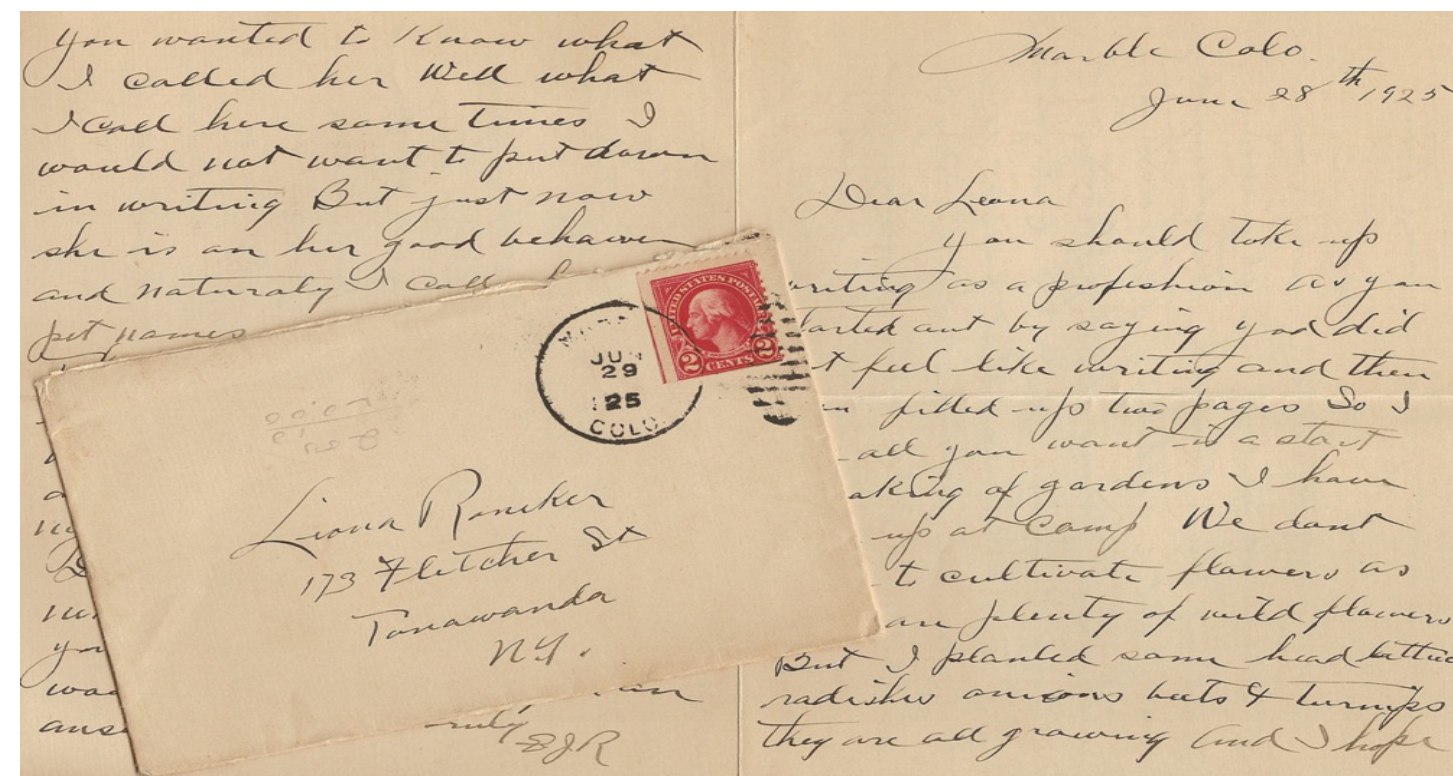 you wanted to Know what
I called her Well what
I call here some times I
would not want to put down
in writing But just now
she is on her good behaver
and naturaly I call
pet names
you
was
ans
truly
EJR
Marble Colo.
June 28th 1925
Dear Leona
you should take up
writing as a profeshion as you
started out by saying you did
feel like writing and then
filled up two pages So I
all you want is a start
aking of gardens I have
up at Camp We dont
to cultivate flowers as
are plenty of wild flowers
But I planted some head lettuce
radishes onions beets & turnips
they are all growing and I hope
UNITED STATES POSTAGE
2 CENTS 2
JUN
29
25
COLO.
Liona Roneker
173 Fletcher St
Tonawanda
N.Y.